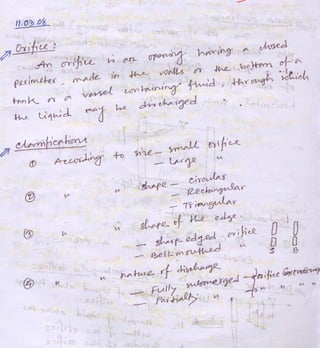 11.03.08
Orifice:
An orifice is an opening having a closed
perimeter, made in the walls or the bottom of a
tank or a vessel containing fluid, through which
the liquid may be discharged.
Classifications
① According to size — small orifice
— large "
② " " shape — circular
— Rectangular
— Triangular
③ " " shape of the edge
— sharp edged orifice
— Bell-mouthed "
S B
④ " " nature of discharge
— Fully submerged orifice
— Partially " " " "